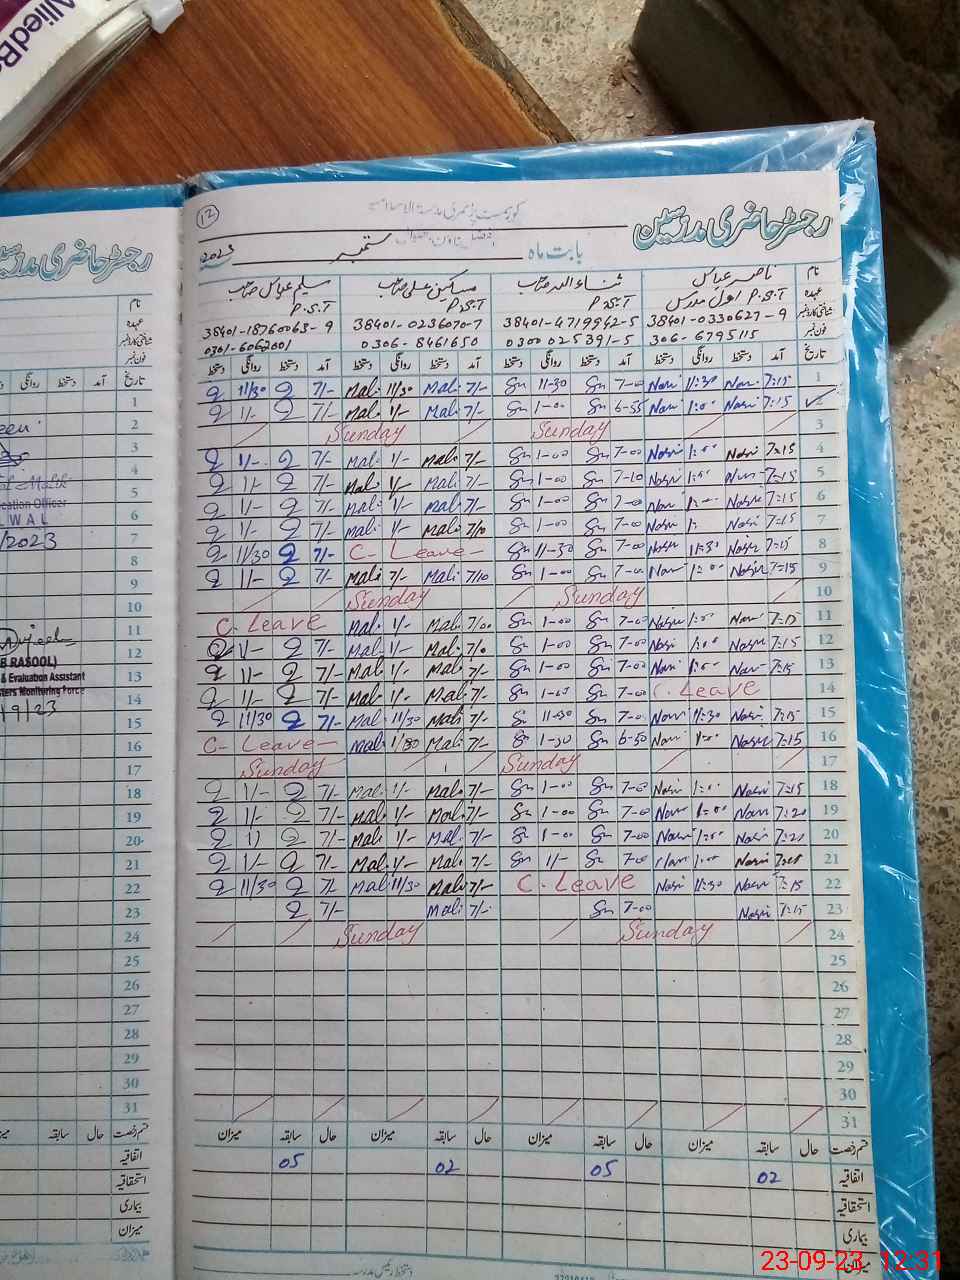 AlliedB
رجسٹر حاضری مدرسین
12
گورنمنٹ پرائمری مدرسۃ الاسلامیہ
رجسٹر حاضری مدرسین
بابت ماہ ستمبر 2023
نام ناصر عباس ثناء اللہ صاحب مسکین علی صاحب سلیم عباس صاحب
عہدہ P.S.T اول مدرس P.S.T P.S.T P.S.T
شناختی کارڈ نمبر 38401-0330627-9 38401-4719942-5 38401-0236070-7 38401-18760063-9
فون نمبر 306-6795115 0300 025391-5 0306-8461650 0301-6062001
تاریخ آمد دستخط روانگی دستخط آمد دستخط روانگی دستخط آمد دستخط روانگی دستخط آمد دستخط روانگی دستخط
1 7:15 Nasir 11:30 Nasir 7-00 Sn 11-30 Sn 7/- Mali 11/30 Mali 7/- 11/30
2 7:15 Nasir 1:00 Nasir 6-55 Sn 1-00 Sn 7/- Mali 1/- Mali 7/- 1/-
3 Sunday Sunday
4 7:15 Nasir 1:00 Nasir 7-00 Sn 1-00 Sn 7/- Mali 1/- Mali 7/- 1/-
5 7:15 Nasir 1:00 Nasir 7-10 Sn 1-00 Sn 7/- Mali 1/- Mali 7/- 1/-
6 7:15 Nasir 1:00 Nasir 7-00 Sn 1-00 Sn 7/- Mali 1/- Mali 7/- 1/-
7 7:15 Nasir 1: Nasir 7-00 Sn 1-00 Sn 7/10 Mali 1/- Mali 7/- 1/-
8 7:15 Nasir 11:30 Nasir 7-00 Sn 11-30 Sn C- Leave- 7/- 11/30
9 7:15 Nasir 1:00 Nasir 7-00 Sn 1-00 Sn 7/10 Mali 7/- Mali 7/- 1/-
10 Sunday Sunday
11 7:15 Nasir 1:00 Nasir 7-00 Sn 1-00 Sn 7/00 Mali 1/- Mali C. Leave
12 7:15 Nasir 1:00 Nasir 7-00 Sn 1-00 Sn 7/0 Mali 1/- Mali 7/- 1/-
13 7:15 Nasir 1:00 Nasir 7-00 Sn 1-00 Sn 7/- Mali 1/- Mali 7/- 1/-
14 C. Leave 7-00 Sn 1-00 Sn 7/- Mali 1/- Mali 7/- 1/-
15 7:15 Nasir 11:30 Nasir 7-00 Sn 11-30 Sn 7/- Mali 11/30 Mali 7/- 11/30
16 7:15 Nasir 1:00 Nasir 6-50 Sn 1-30 Sn 7/- Mali 1/30 Mali C- Leave-
17 Sunday Sunday
18 7:15 Nasir 1:00 Nasir 7-00 Sn 1-00 Sn 7/- Mali 1/- Mali 7/- 1/-
19 7:20 Nasir 1:00 Nasir 7-00 Sn 1-00 Sn 7/- Mali 1/- Mali 7/- 1/-
20 7:20 Nasir 1:00 Nasir 7-00 Sn 1-00 Sn 7/- Mali 1/- Mali 7/- 1/
21 Nasir 1:00 Nasir 7-00 Sn 1/- Sn 7/- Mali 1/- Mali 7/- 1/-
22 7:15 Nasir 11:30 Nasir C. Leave 7/- Mali 11/30 Mali 7/- 11/30
23 7:15 Nasir 7-00 Sn 7/- Mali 7/-
24 Sunday Sunday
25
26
27
28
29
30
31
قسم رخصت حال سابقہ میزان حال سابقہ میزان حال سابقہ میزان حال سابقہ میزان
اتفاقیہ 02 05 02 05
استحقاقیہ
بیماری
میزان
دستخط رئیس مدرسہ
نام
عہدہ
شناختی کارڈ نمبر
فون نمبر
تاریخ آمد دستخط
1
2
3
4
5
cation Officer
6
LWAL
7
/2023
8
9
10
11
12
B RASOOL)
13
& Evaluation Assistant
sters Monitoring Force
14
19/23
15
16
17
18
19
20
21
22
23
24
25
26
27
28
29
30
31
قسم رخصت حال سابقہ
اتفاقیہ
استحقاقیہ
بیماری
میزان
23-09-23 12:31